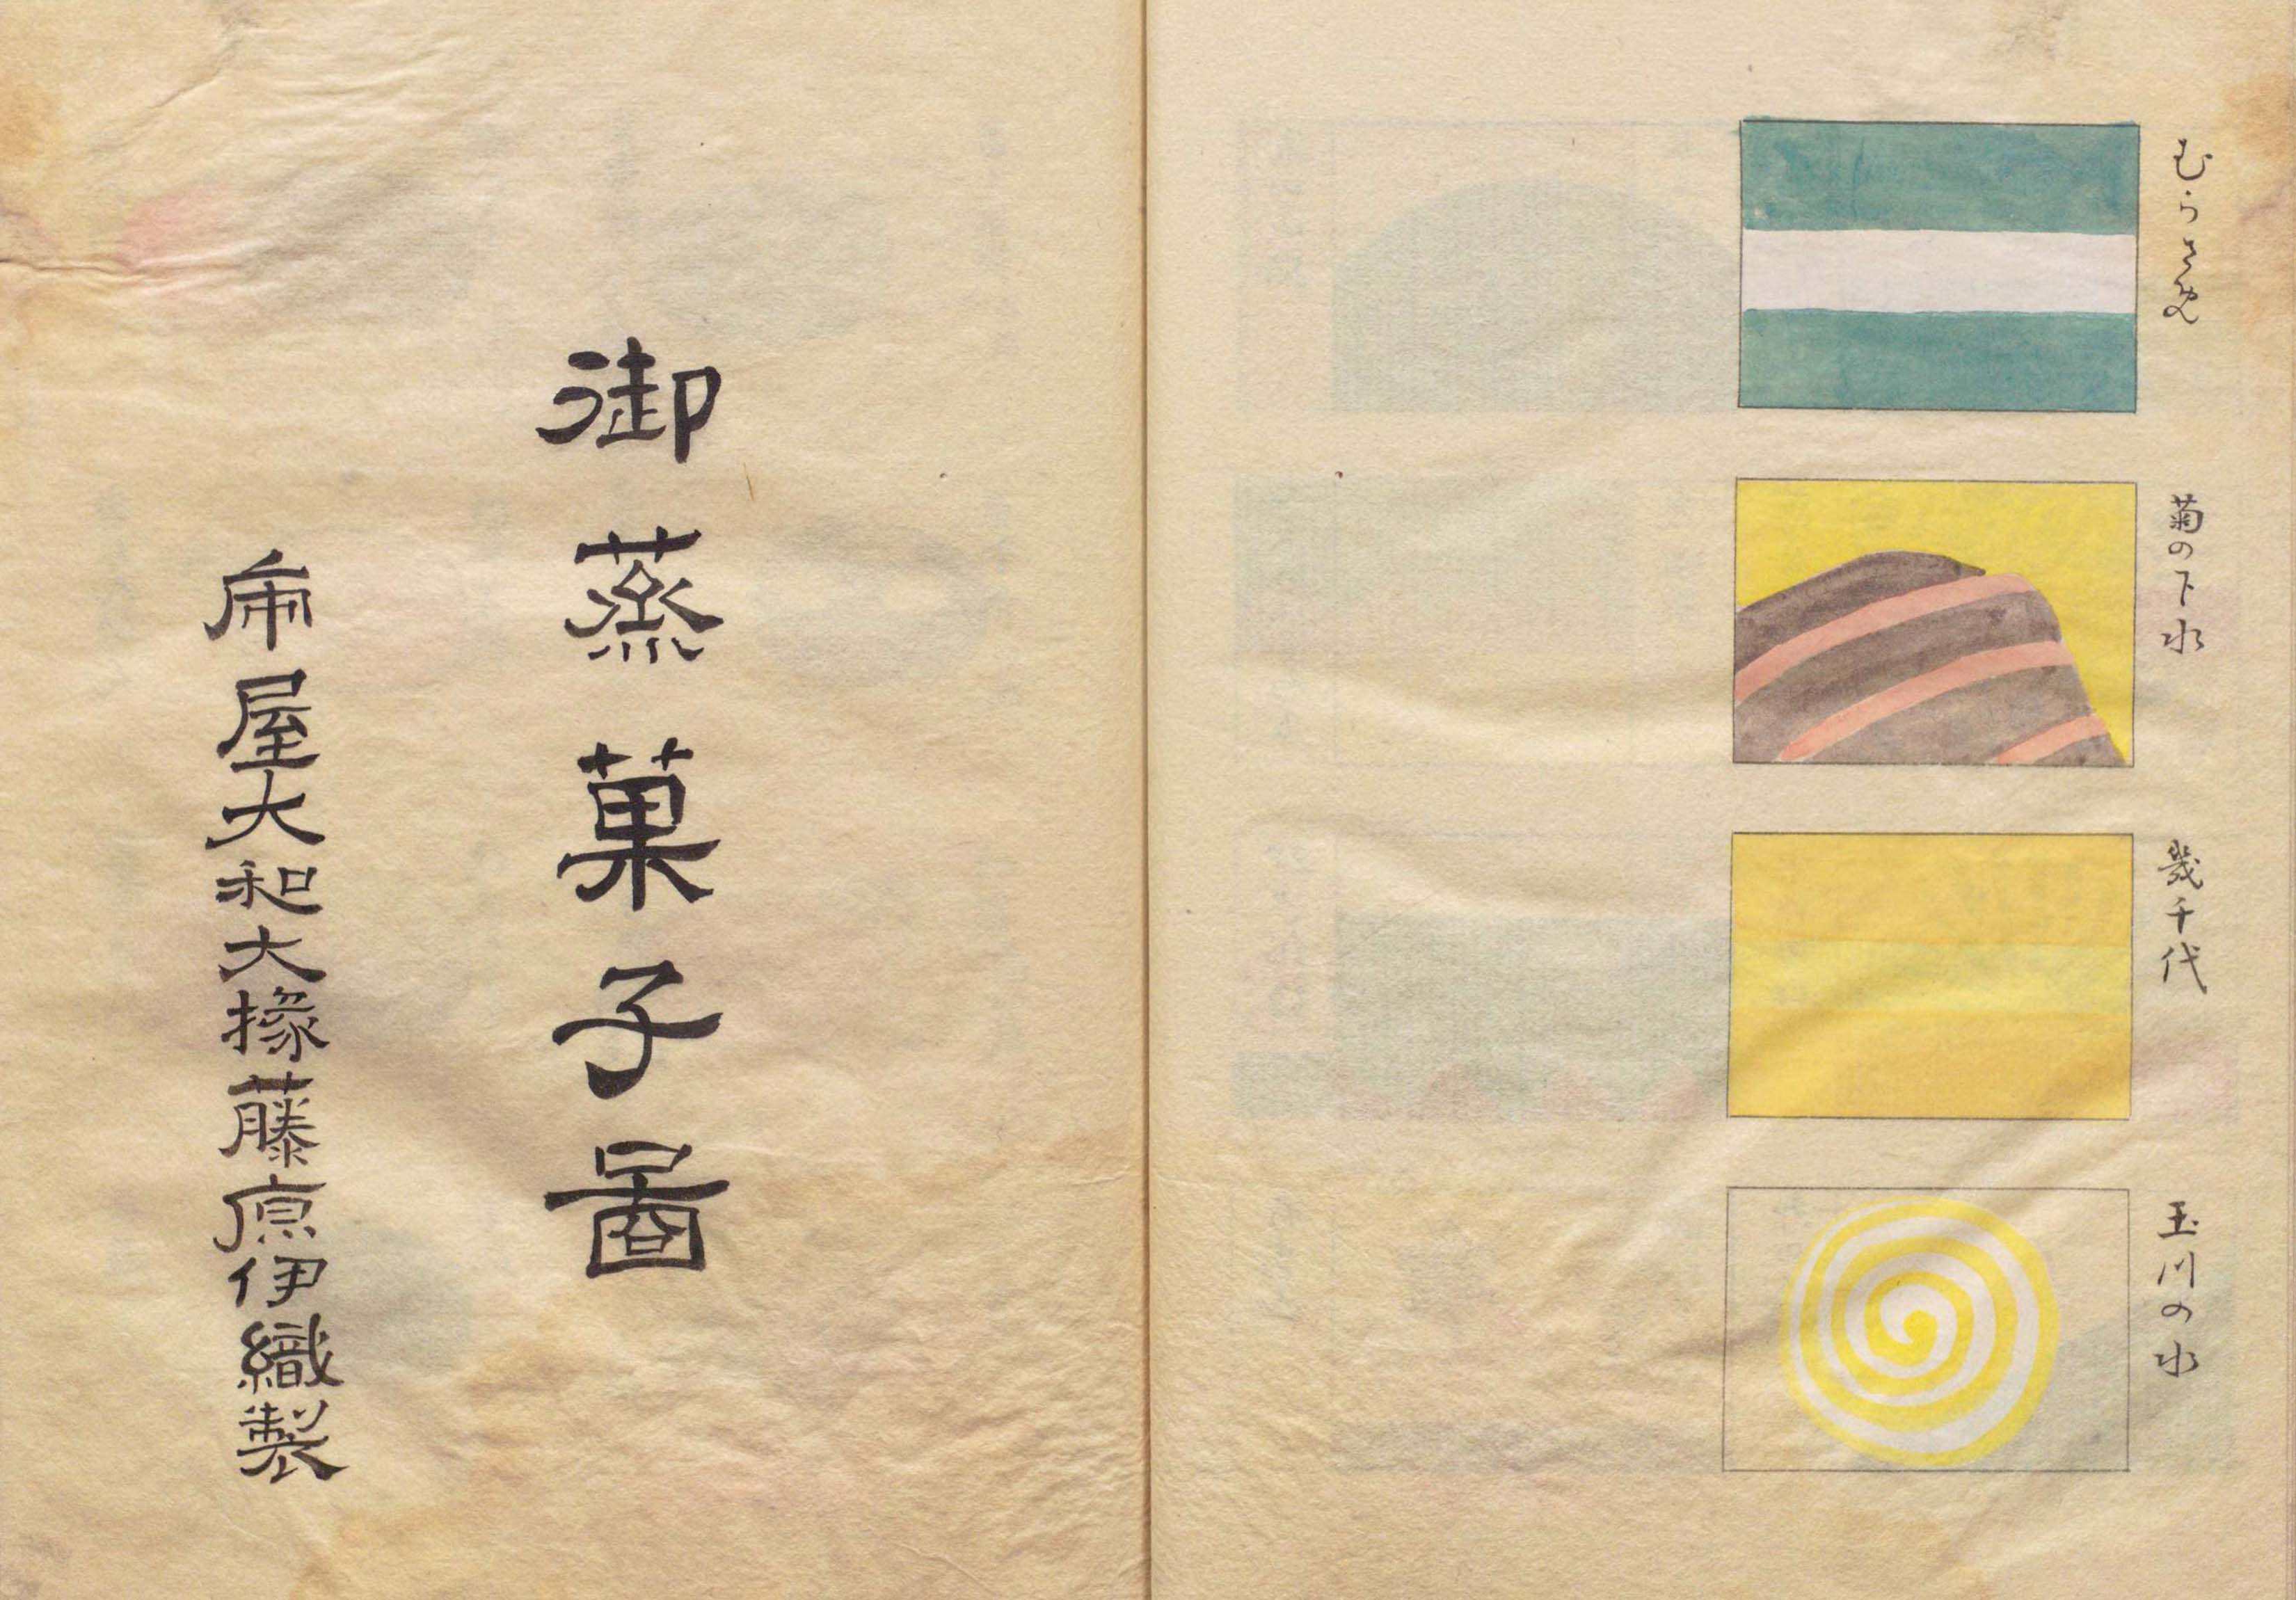 むらさめ
菊の下水
幾千代
玉川の水
御蒸菓子圖
乕屋大和大掾藤原伊織製